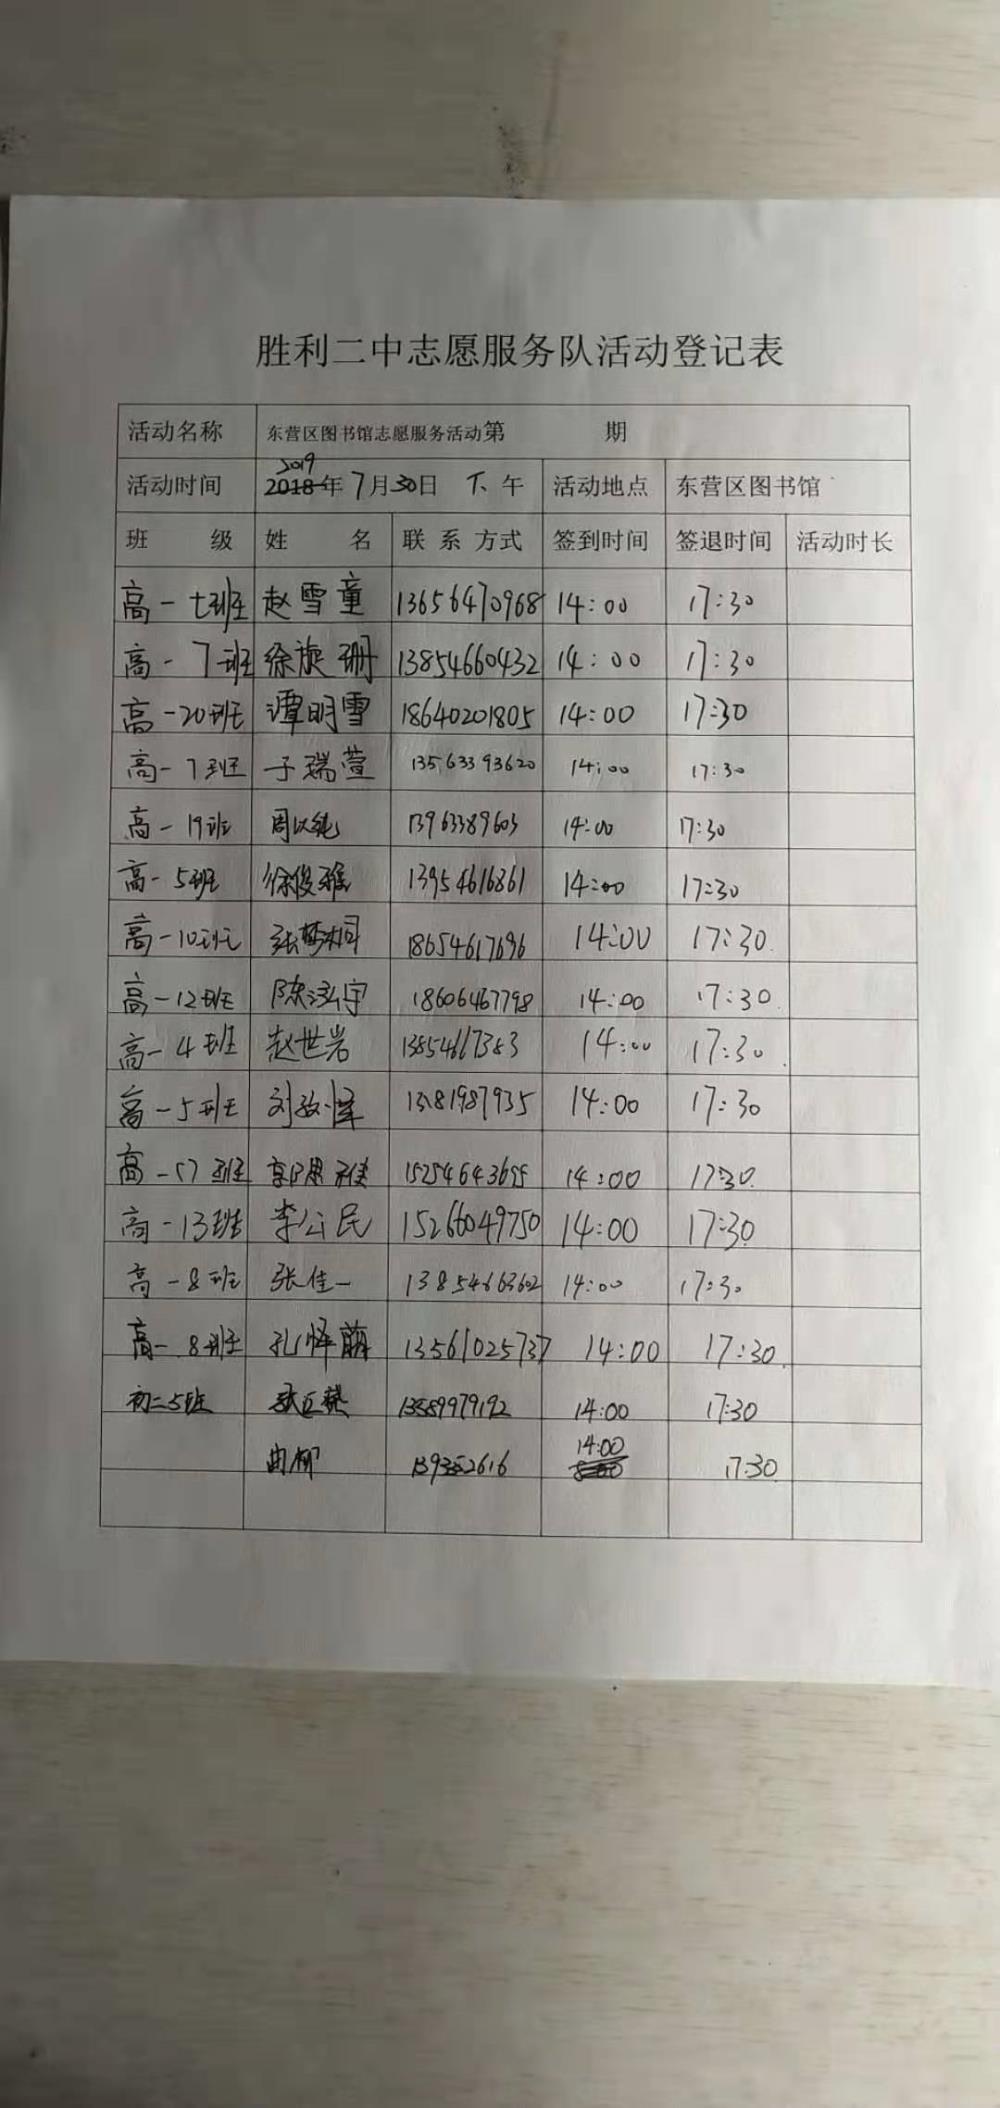 胜利二中志愿服务队活动登记表
活动名称 东营区图书馆志愿服务活动第 期
2019
活动时间 2018年7月30日 下午 活动地点 东营区图书馆
班 级 姓 名 联 系 方式 签到时间 签退时间 活动时长
高一七班 赵雪童 13656470968 14:00 17:30
高一7班 徐旋珊 13854660432 14:00 17:30
高一20班 谭明雪 18640201805 14:00 17:30
高一7班 于瑞萱 13563393620 14:00 17:30
高一19班 周以纯 13963389603 14:00 17:30
高一5班 徐俊雅 13954616861 14:00 17:30
高一10班 张梦桐 18654617696 14:00 17:30
高一12班 陈泓宇 18606467798 14:00 17:30
高一4班 赵世岩 13854667383 14:00 17:30
高一5班 刘 14:00 17:30
高一17班 14:00 17:30
高一13班 李公民 15266049750 14:00 17:30
高一8班 张佳一 13854663602 14:00 17:30
高一8班 孔怿萌 13561025737 14:00 17:30
初二5班 14:00 17:30
曲柳 14:00 17:30